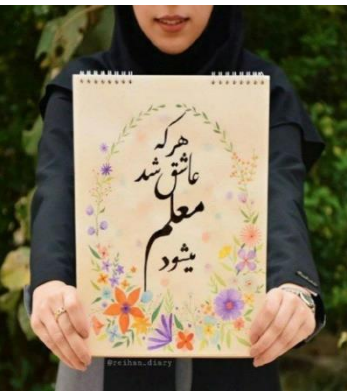 هرکه
عاشق شد
معلم
میشود
@reihan.diary